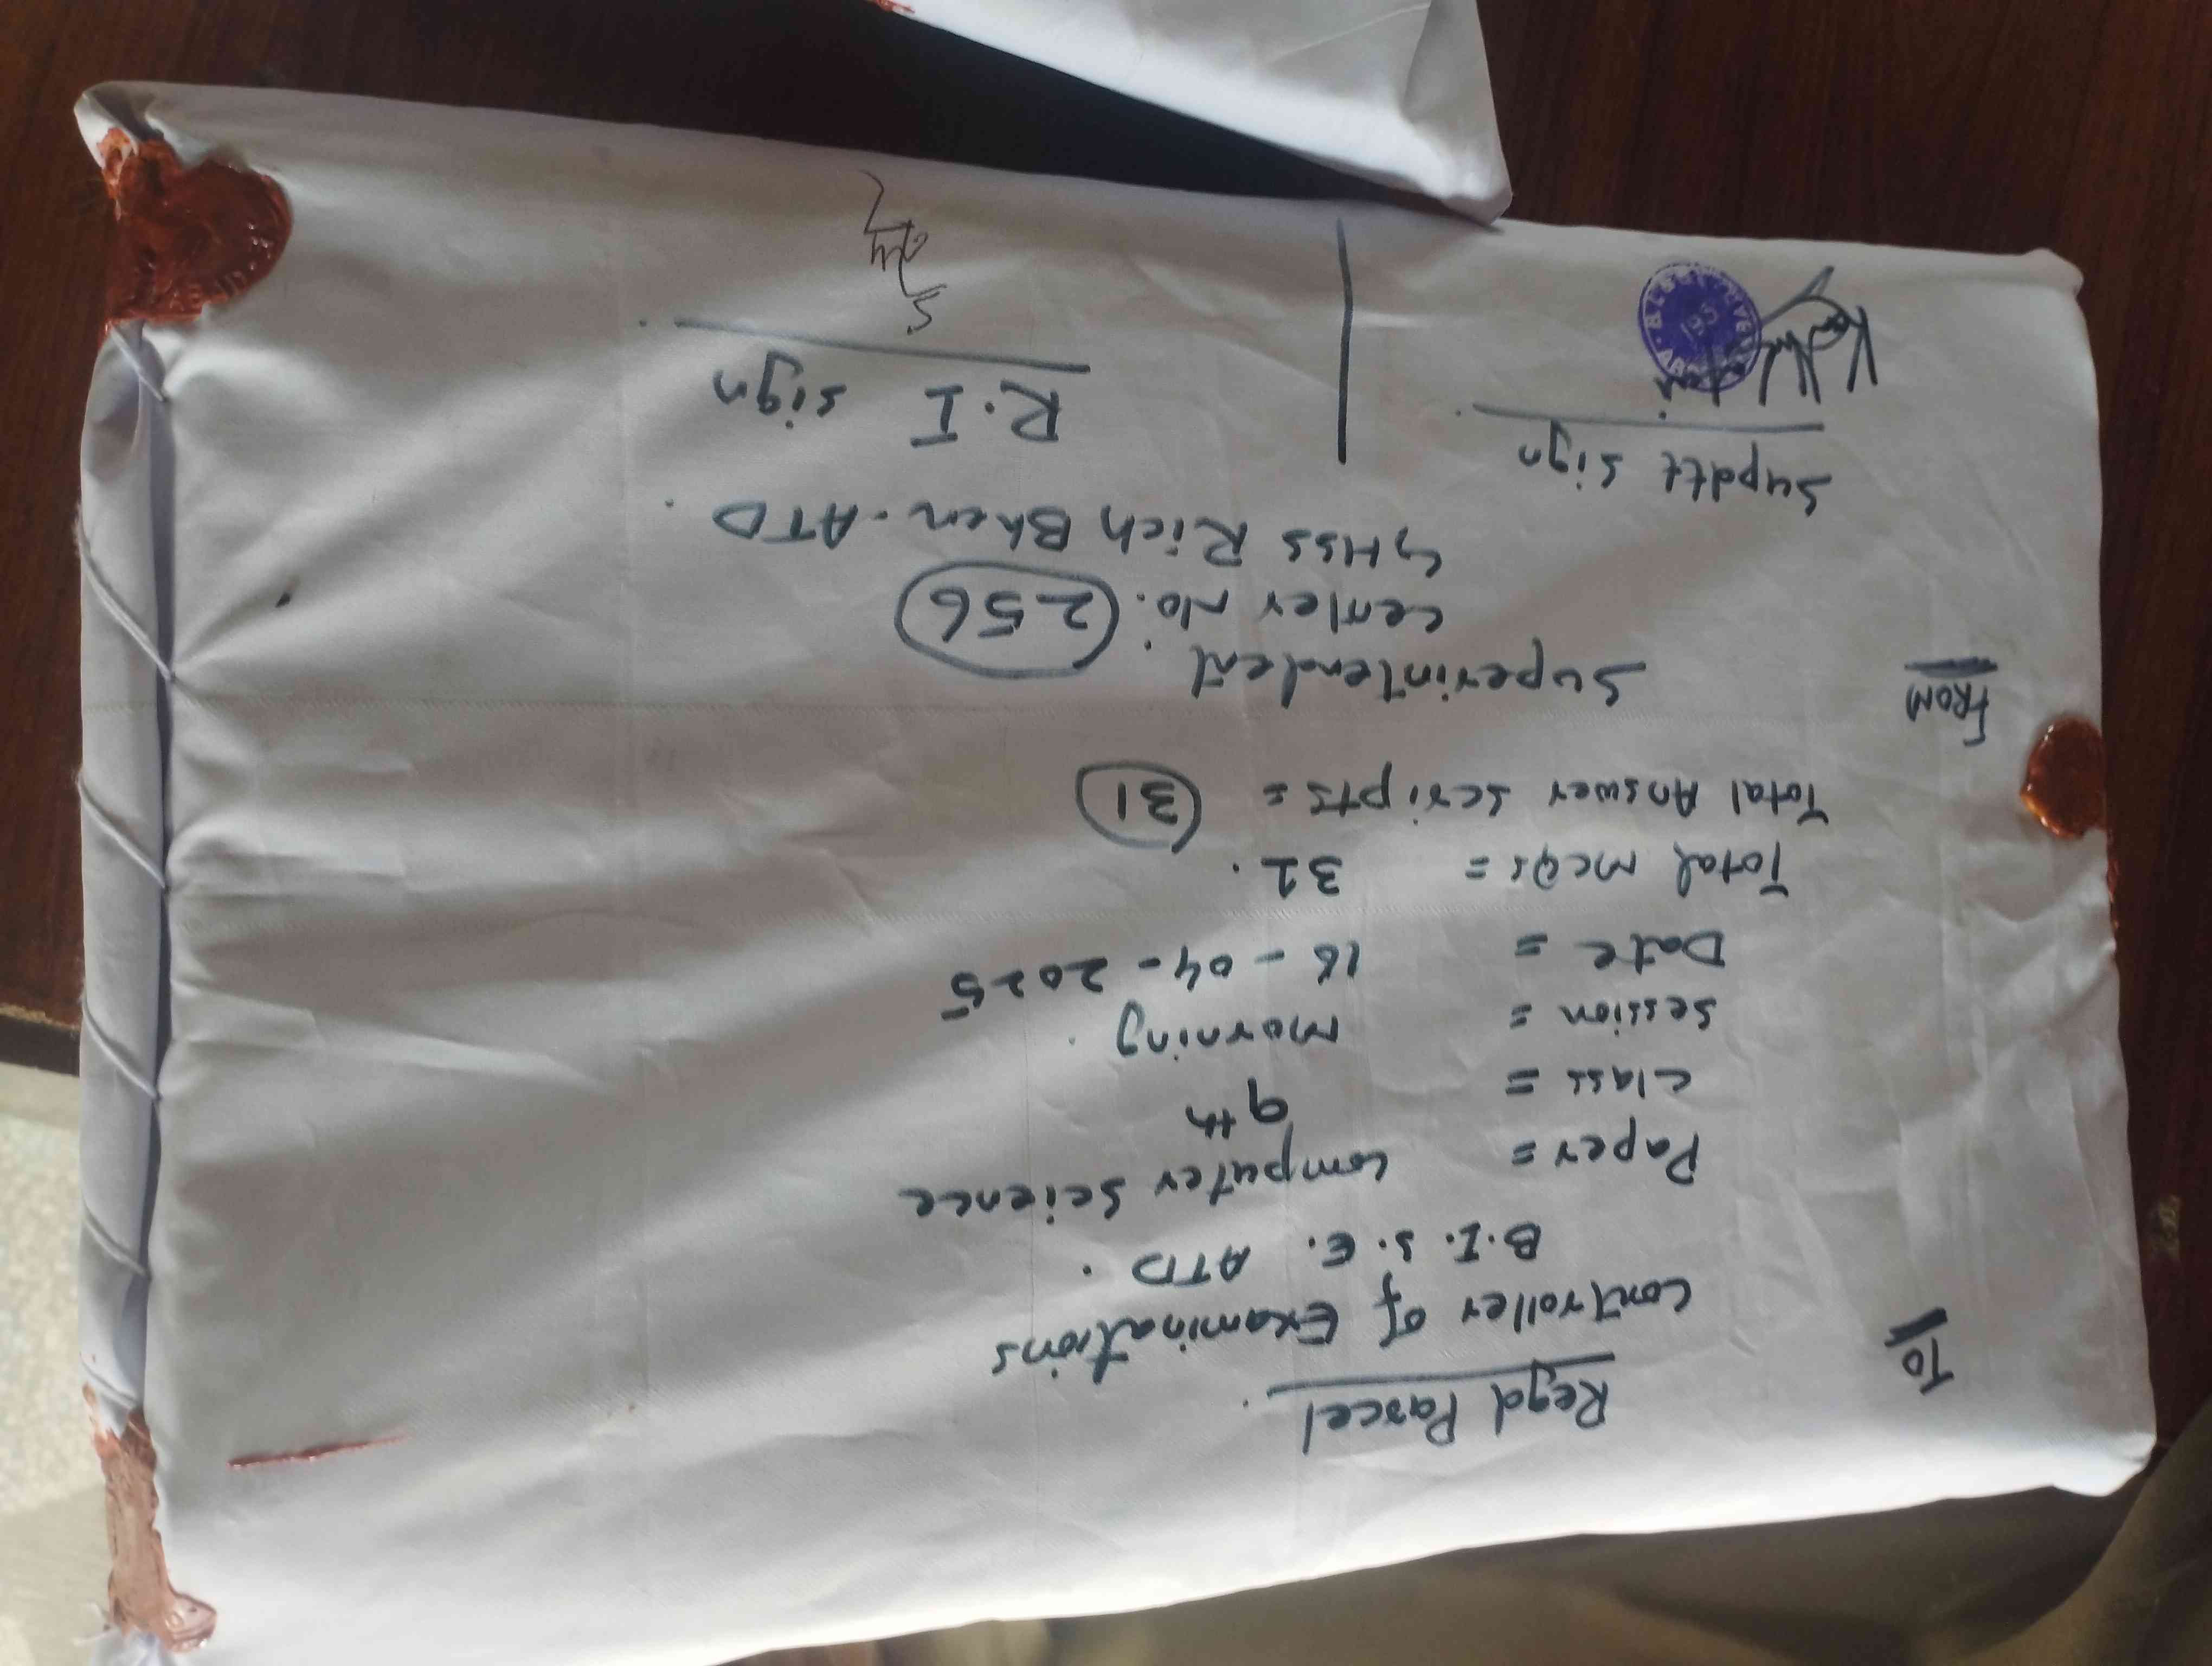 Regd Parcel.
TO
Controller of Examinations
B.I.S.E. ATD.
Paper = Computer Science
Class = 9th
Session = Morning.
Date = 16-04-2025
Total MCQs = 31.
Total Answer Scripts = 31
FROM
Superintendent.
Center No. 256
GHSS Rich Bhen. ATD.
Supdtt Sign
R.I sign
193